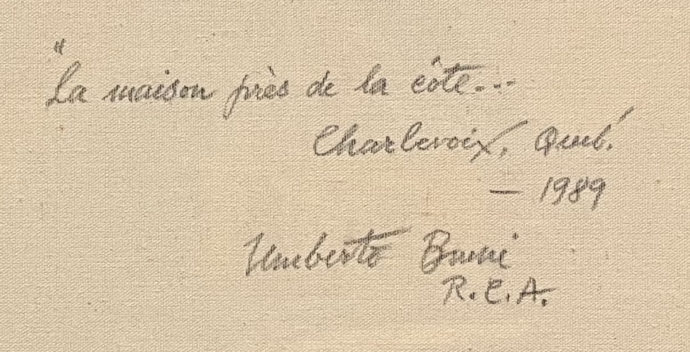 "La maison près de la côte...
Charlevoix, Qué.
— 1989
Umberto Bruni
R.C.A.